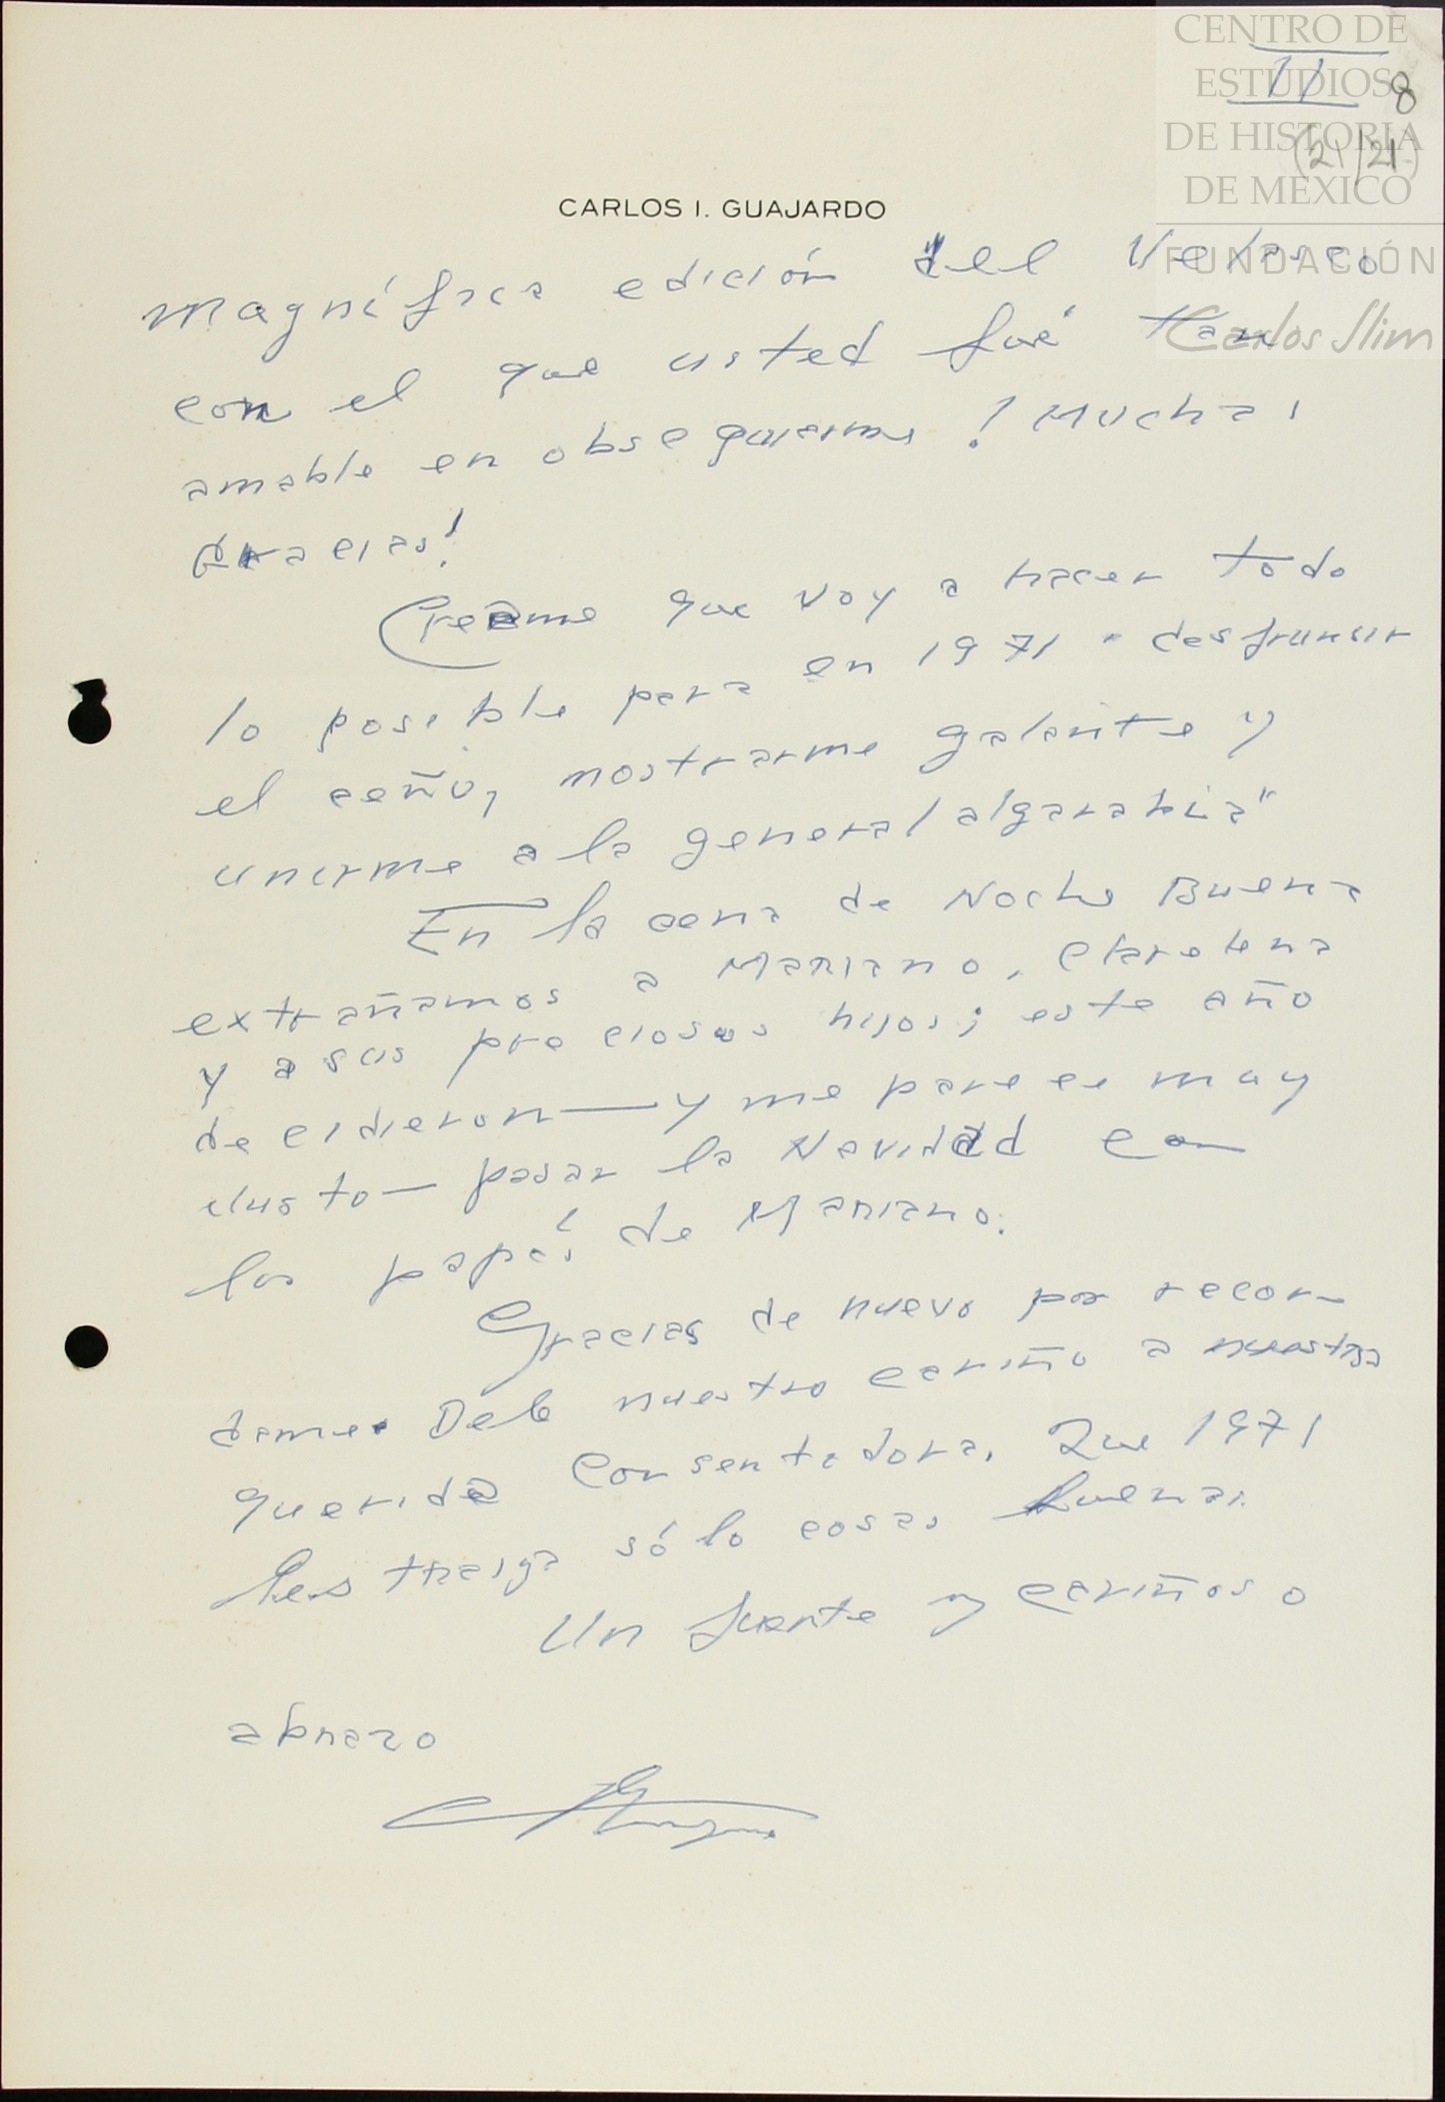 CENTRO DE
ESTUDIOS
DE HISTORIA
DE MÉXICO
FUNDACIÓN
Carlos Slim
II
8
(21/21)
CARLOS I. GUAJARDO
magnífica edición del Velasco
con el que usted fué tan
amable en obsequiarme ! Muchas
gracias!
Créame que voy a hacer todo
lo posible para en 1971 "desfruncir
el ceño, mostrarme galante y
unirme a la general algarabía"
En la cena de Noche Buena
extrañamos a Mariano,
y a sus preciosos hijos; este año
decidieron — y me parece muy
justo — pasar la Navidad con
los papás de Mariano.
Gracias de nuevo por recor-
darme. Dele nuestro cariño a nuestra
querida consentadora. Que 1971
les traiga sólo cosas buenas.
Un fuerte y cariñoso
abrazo